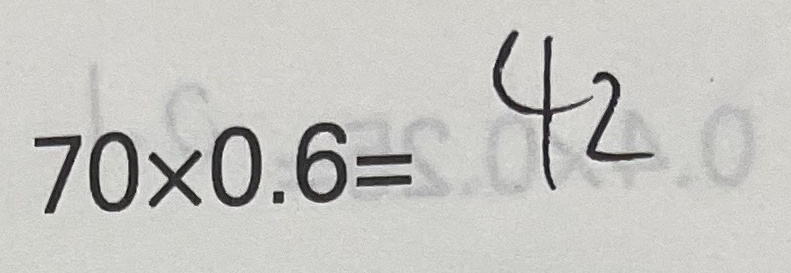 70×0.6= 42